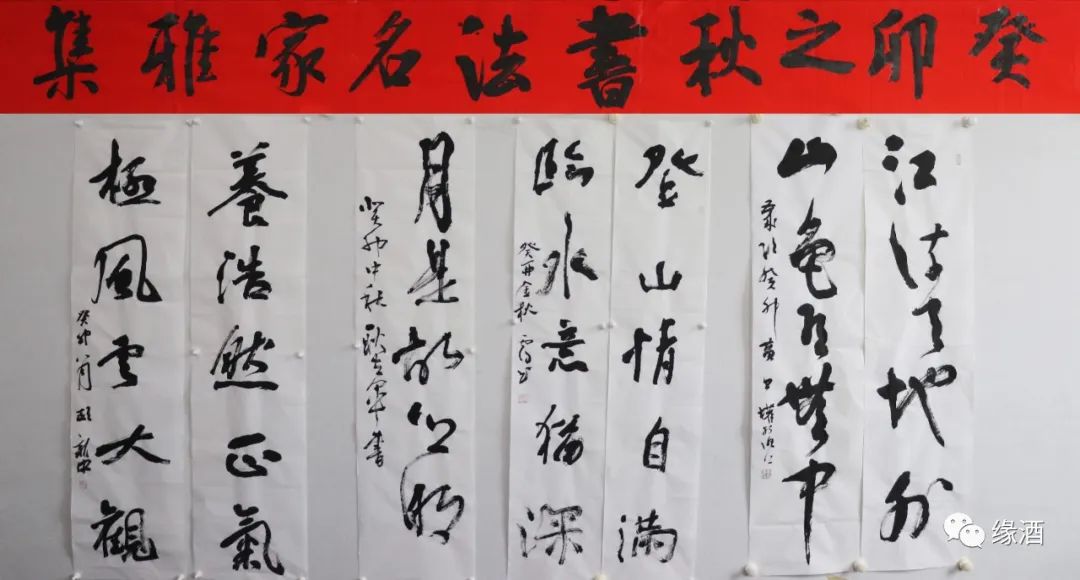 癸卯之秋書法名家雅集
江流天地外
山色有無中
癸卯
登山情自滿
臨水意猶深
癸卯金秋
月是故鄉明
癸卯中秋
書
養浩然正氣
極風雲大觀
癸卯八月
缘酒